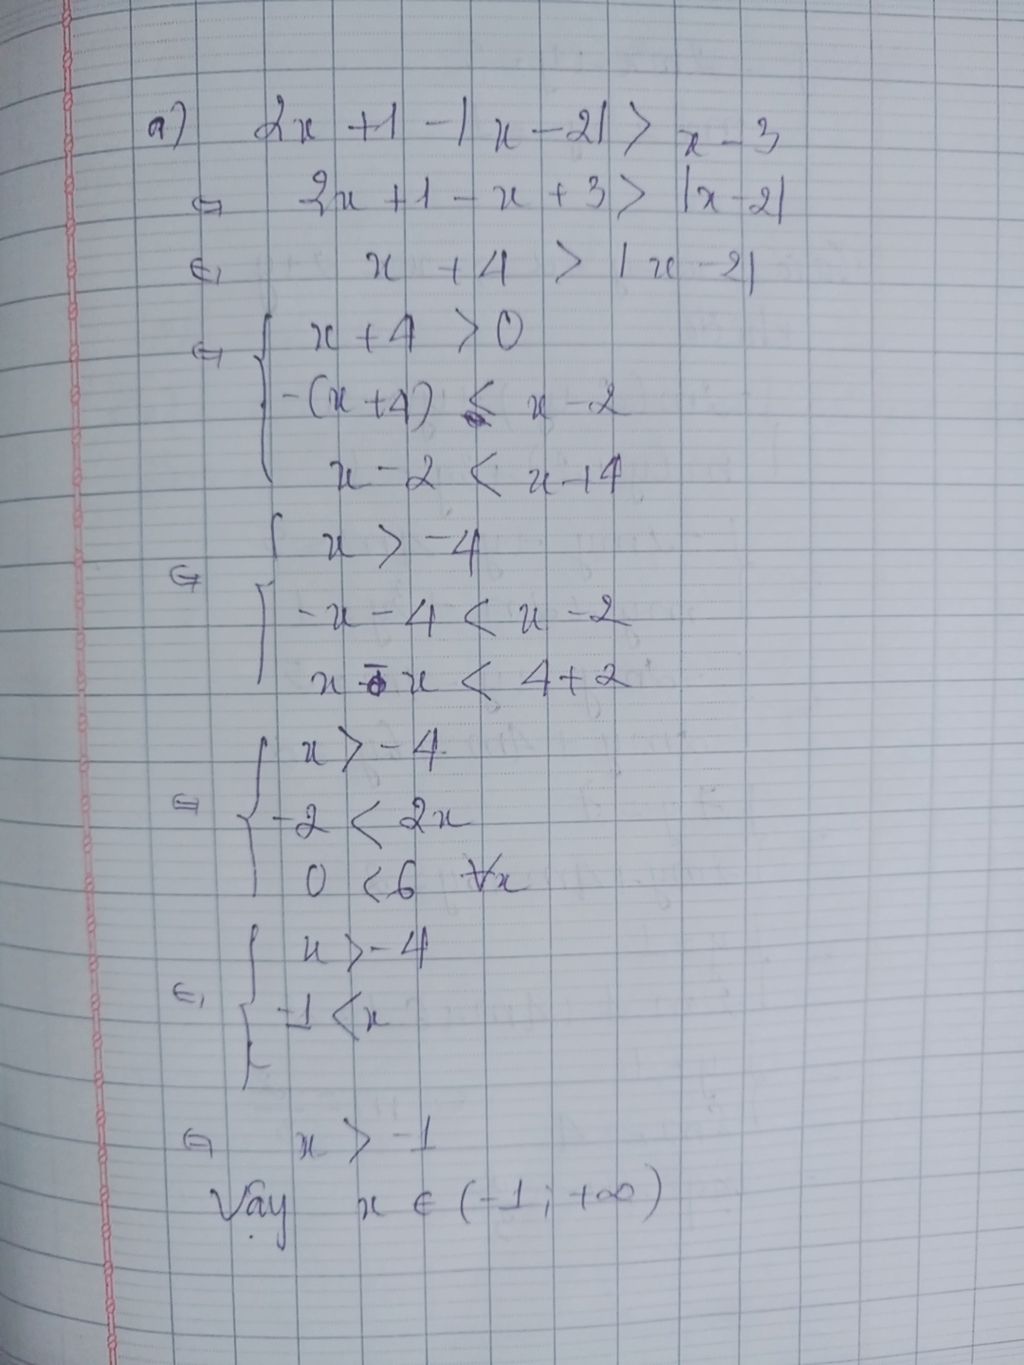 a) 2x + 1 - |x - 2| > x - 3
⇔ 2x + 1 - x + 3 > |x - 2|
⇔ x + 4 > |x - 2|
⇔ { x + 4 > 0
-(x + 4) < x - 2
x - 2 < x + 4
⇔ { x > -4
-x - 4 < x - 2
x - x < 4 + 2
⇔ { x > -4
-2 < 2x
0 < 6 ∀x
⇔ { x > -4
-1 < x
⇔ x > -1
Vậy x ∈ (-1; +∞)